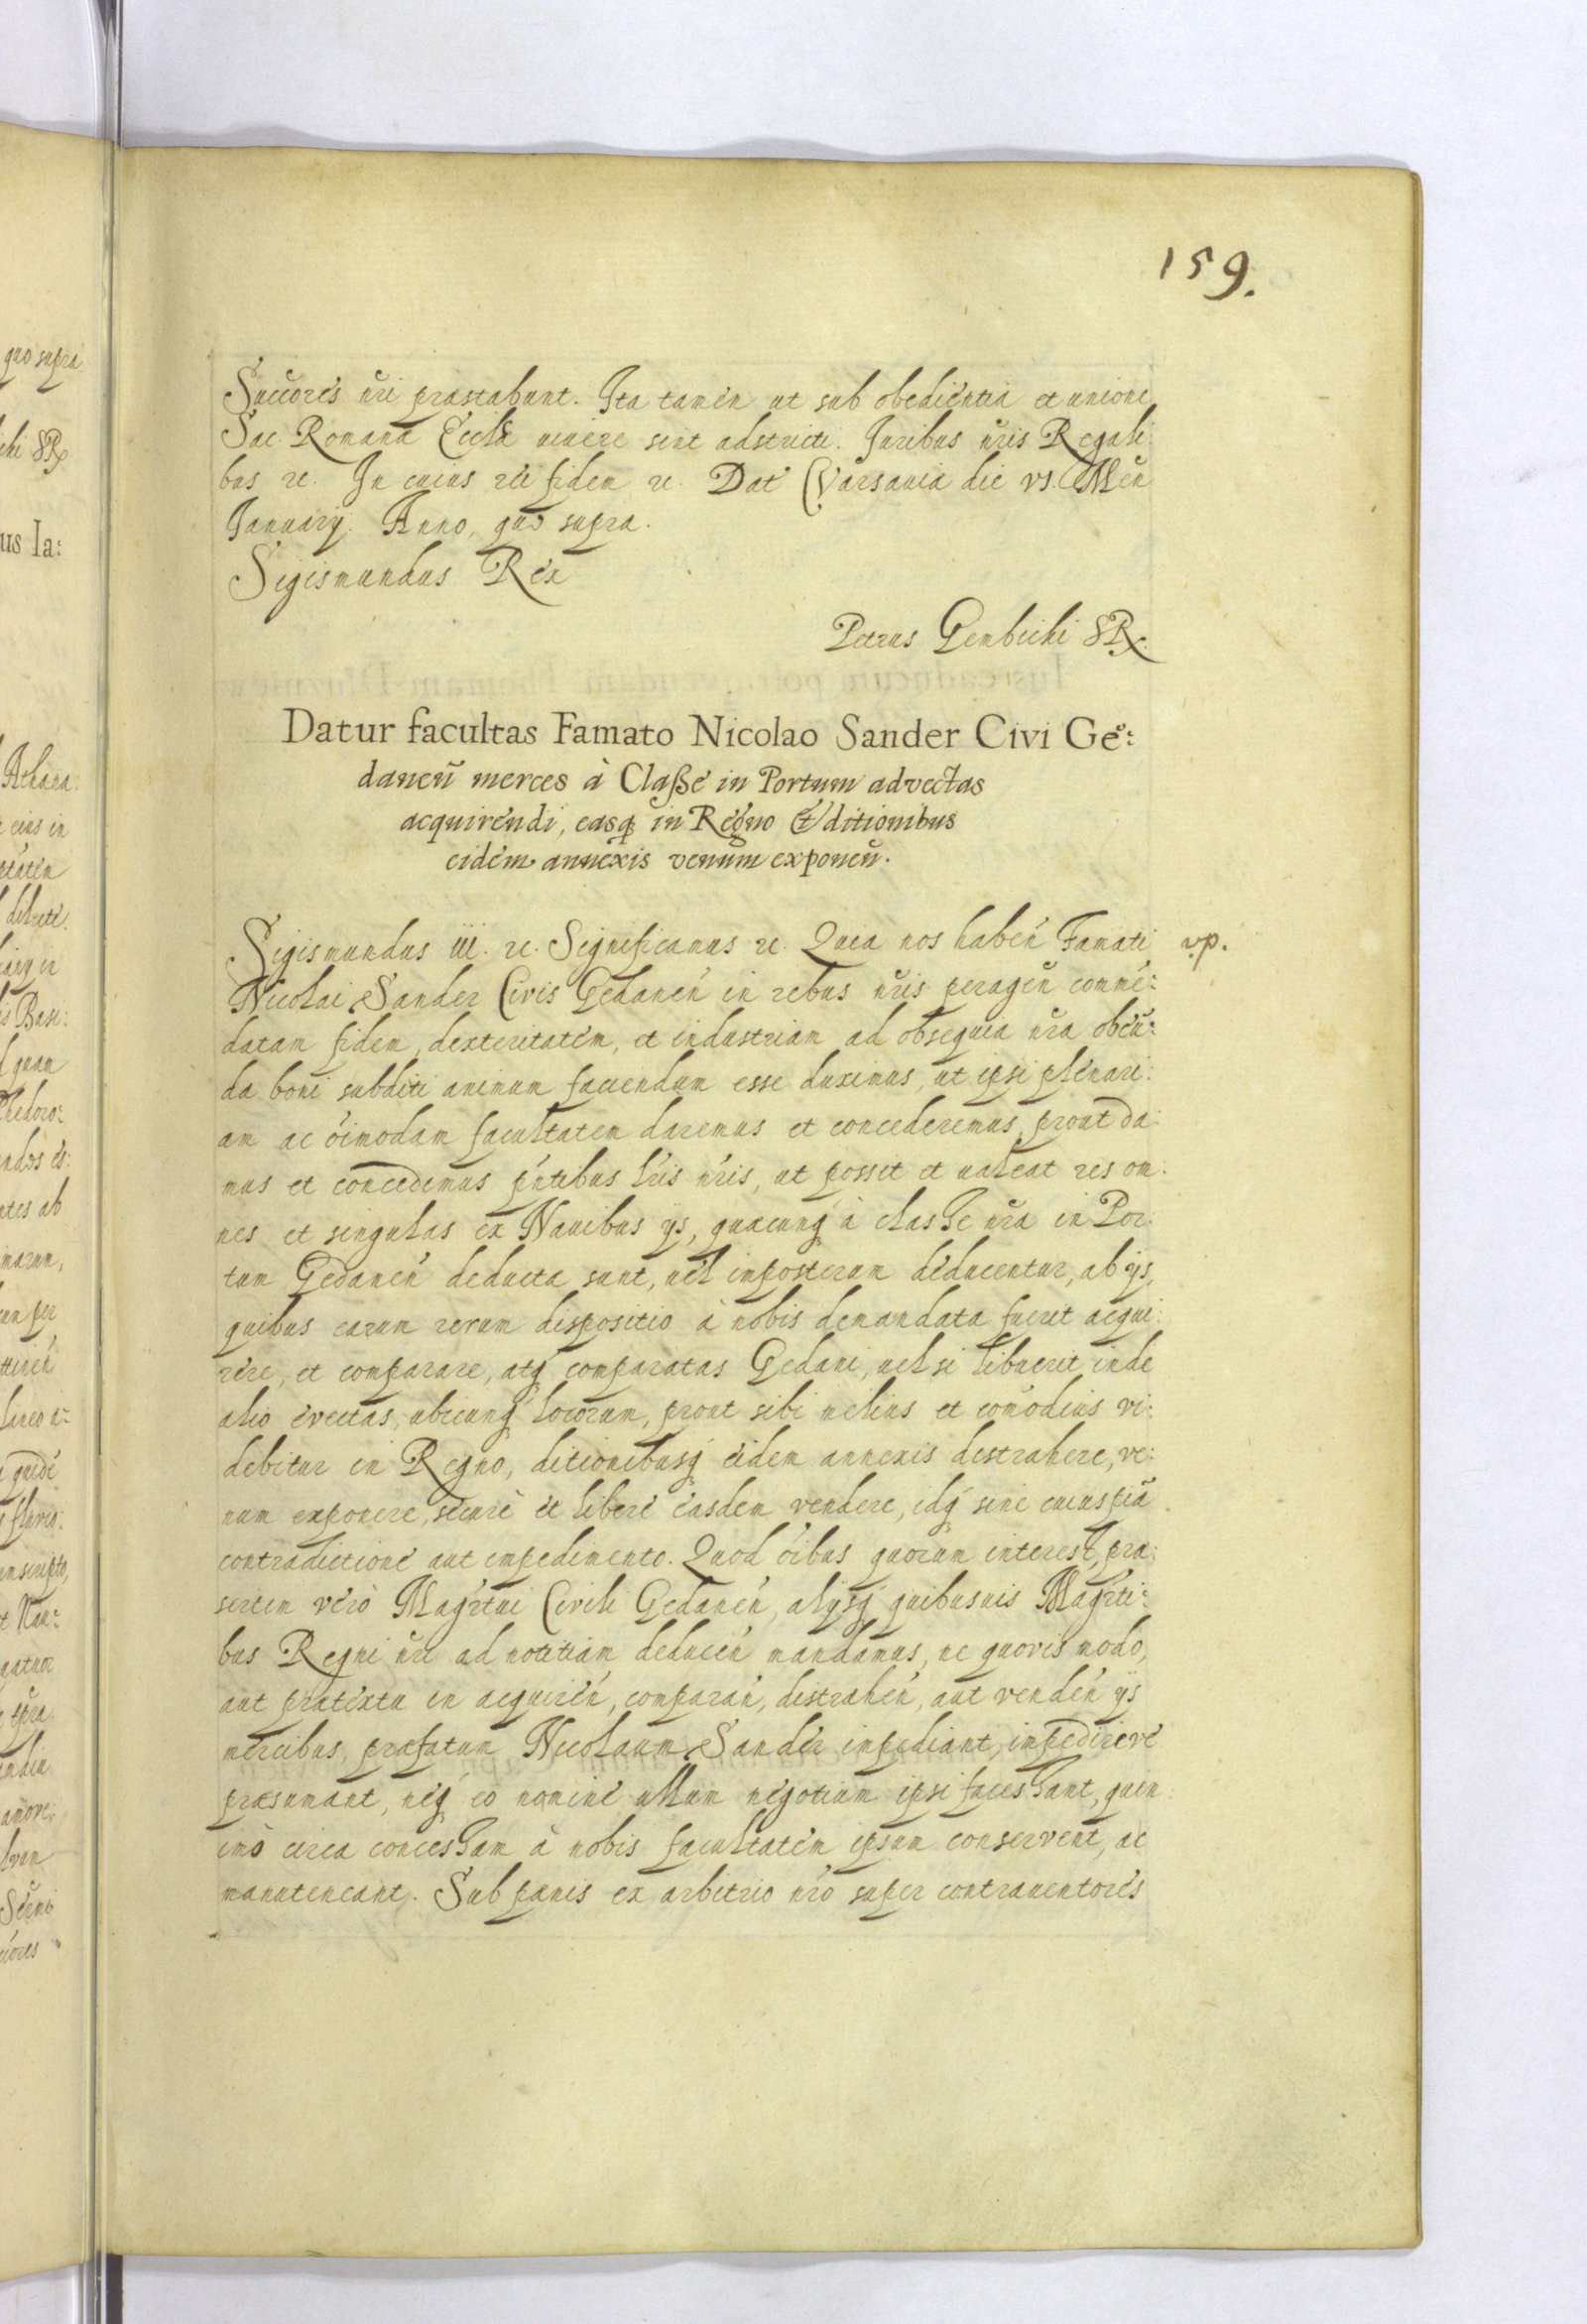 159.
Succores nri præstabunt. Ita tamen ut sub obedientia et unione
Sac Romanæ Eccłæ vivere sint adstricti. Juribus nris Regali:
bus etc. In cuius rei fidem etc. Dat Varsaviæ die vs. Men
Januarij. Anno, quo supra.
Sigismundus Rex
Petrus Gembicki SRX.
Datur facultas Famato Nicolao Sander Civi Ge:
daneñ merces à Claße in Portum advectas
acquirendi, easq́ in Regno & ditionibus
eidem annexis venum exponeñ.
Sigismundus iii. etc. Significamus etc. Quia nos habeń Famati
vp.
Nicolai Sander Civis Gedaneń in rebus nris perageń commē:
datam fidem, dexteritatem, et industriam ad obsequia nra obeū:
da boni subditi animum faciendum esse duximus, ut ipsi plenari:
am ac oimodam facultatem daremus et concederemus, prout da:
mus et concedimus pntibus lris nris, ut possit et valeat res om:
nes et singulas ex Navibus ijs, quæcunq́ à classe nra in Por:
tum Gedaneń deducta sunt, vel inposterum deducentur, ab ijs,
quibus earum rerum dispositio à nobis demandata fuerit acqui:
rere, et comparare, atq́ comparatas Gedani, vel si libuerit inde
alio evectas, ubicunq́ locorum, prout sibi melius et comodius vi:
debitur in Regno, ditionibusq́ eidem annexis distrahere, ve:
num exponere, secure et libere easdem vendere, idq́ sine cuiuspiā
contradictione aut impedimento. Quod oibus quorum interest, præ:
sertim vero Magrtui Civili Gedaneń, alijsq́ quibusvis Magrti:
bus Regni nri ad notitiam deduceń mandamus, ne quovis modo,
aut prætextu in acquireń, comparań, distraheń, aut vendeń ijs
mercibus, præfatum Nicolaum Sander impediant, impedireve
præsumant, neq́ eo nomine ullum negotium ipsi facessant, quin:
imò circa concessam à nobis facultatem ipsum conservent, ac
manuteneant. Sub pœnis ex arbitrio nro super contraventores